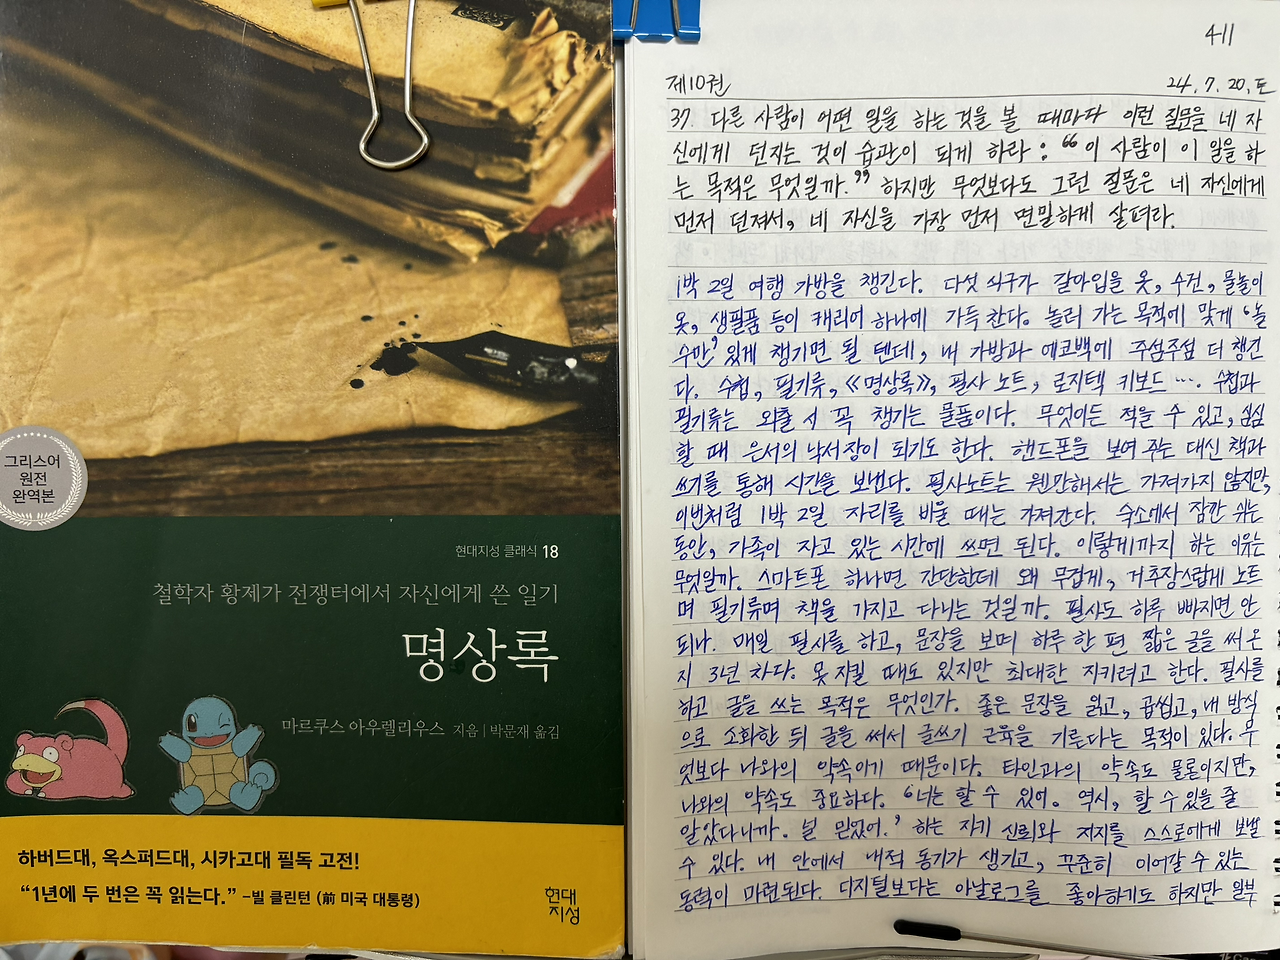 그리스어
원전
완역본
현대지성 클래식 18
철학자 황제가 전쟁터에서 자신에게 쓴 일기
명상록
마르쿠스 아우렐리우스 지음 | 박문재 옮김
하버드대, 옥스퍼드대, 시카고대 필독 고전!
“1년에 두 번은 꼭 읽는다.” –빌 클린턴 (前 미국 대통령)
현대
지성
411
제10권
24. 7. 20. 토
37. 다른 사람이 어떤 일을 하는 것을 볼 때마다 이런 질문을 네 자
신에게 던지는 것이 습관이 되게 하라 : “이 사람이 이 일을 하
는 목적은 무엇일까.” 하지만 무엇보다도 그런 질문은 네 자신에게
먼저 던져서, 네 자신을 가장 먼저 면밀하게 살펴라.
1박 2일 여행 가방을 챙긴다. 다섯 식구가 갈아입을 옷, 수건, 물놀이
옷, 생필품 등이 캐리어 하나에 가득 찬다. 놀러 가는 목적에 맞게 ‘놀
수만’ 있게 챙기면 될 텐데, 내 가방과 에코백에 주섬주섬 더 챙긴
다. 수첩, 필기류, 《명상록》, 필사 노트, 로지텍 키보드 …. 수첩과
필기류는 외출 시 꼭 챙기는 물품이다. 무엇이든 적을 수 있고, 심심
할 때 은서의 낙서장이 되기도 한다. 핸드폰을 보여 주는 대신 책과
쓰기를 통해 시간을 보낸다. 필사노트는 웬만해서는 가져가지 않지만,
이번처럼 1박 2일 자리를 비울 때는 가져간다. 숙소에서 잠깐 쉬는
동안, 가족이 자고 있는 시간에 쓰면 된다. 이렇게까지 하는 이유는
무엇일까. 스마트폰 하나면 간단한데 왜 무겁게, 거추장스럽게 노트
며 필기류며 책을 가지고 다니는 것일까. 필사도 하루 빠지면 안
되나. 매일 필사를 하고, 문장을 보며 하루 한 편 짧은 글을 써 온
지 3년 차다. 못 지킬 때도 있지만 최대한 지키려고 한다. 필사를
하고 글을 쓰는 목적은 무엇인가. 좋은 문장을 읽고, 곱씹고, 내 방식
으로 소화한 뒤 글을 써서 글쓰기 근육을 기른다는 목적이 있다. 무
엇보다 나와의 약속이기 때문이다. 타인과의 약속도 물론이지만,
나와의 약속도 중요하다. ‘너는 할 수 있어. 역시, 할 수 있을 줄
알았다니까. 널 믿었어.’ 하는 자기 신뢰와 지지를 스스로에게 보낼
수 있다. 내 안에서 내적 동기가 생기고, 꾸준히 이어갈 수 있는
동력이 마련된다. 디지털보다는 아날로그를 좋아하기도 하지만 일부